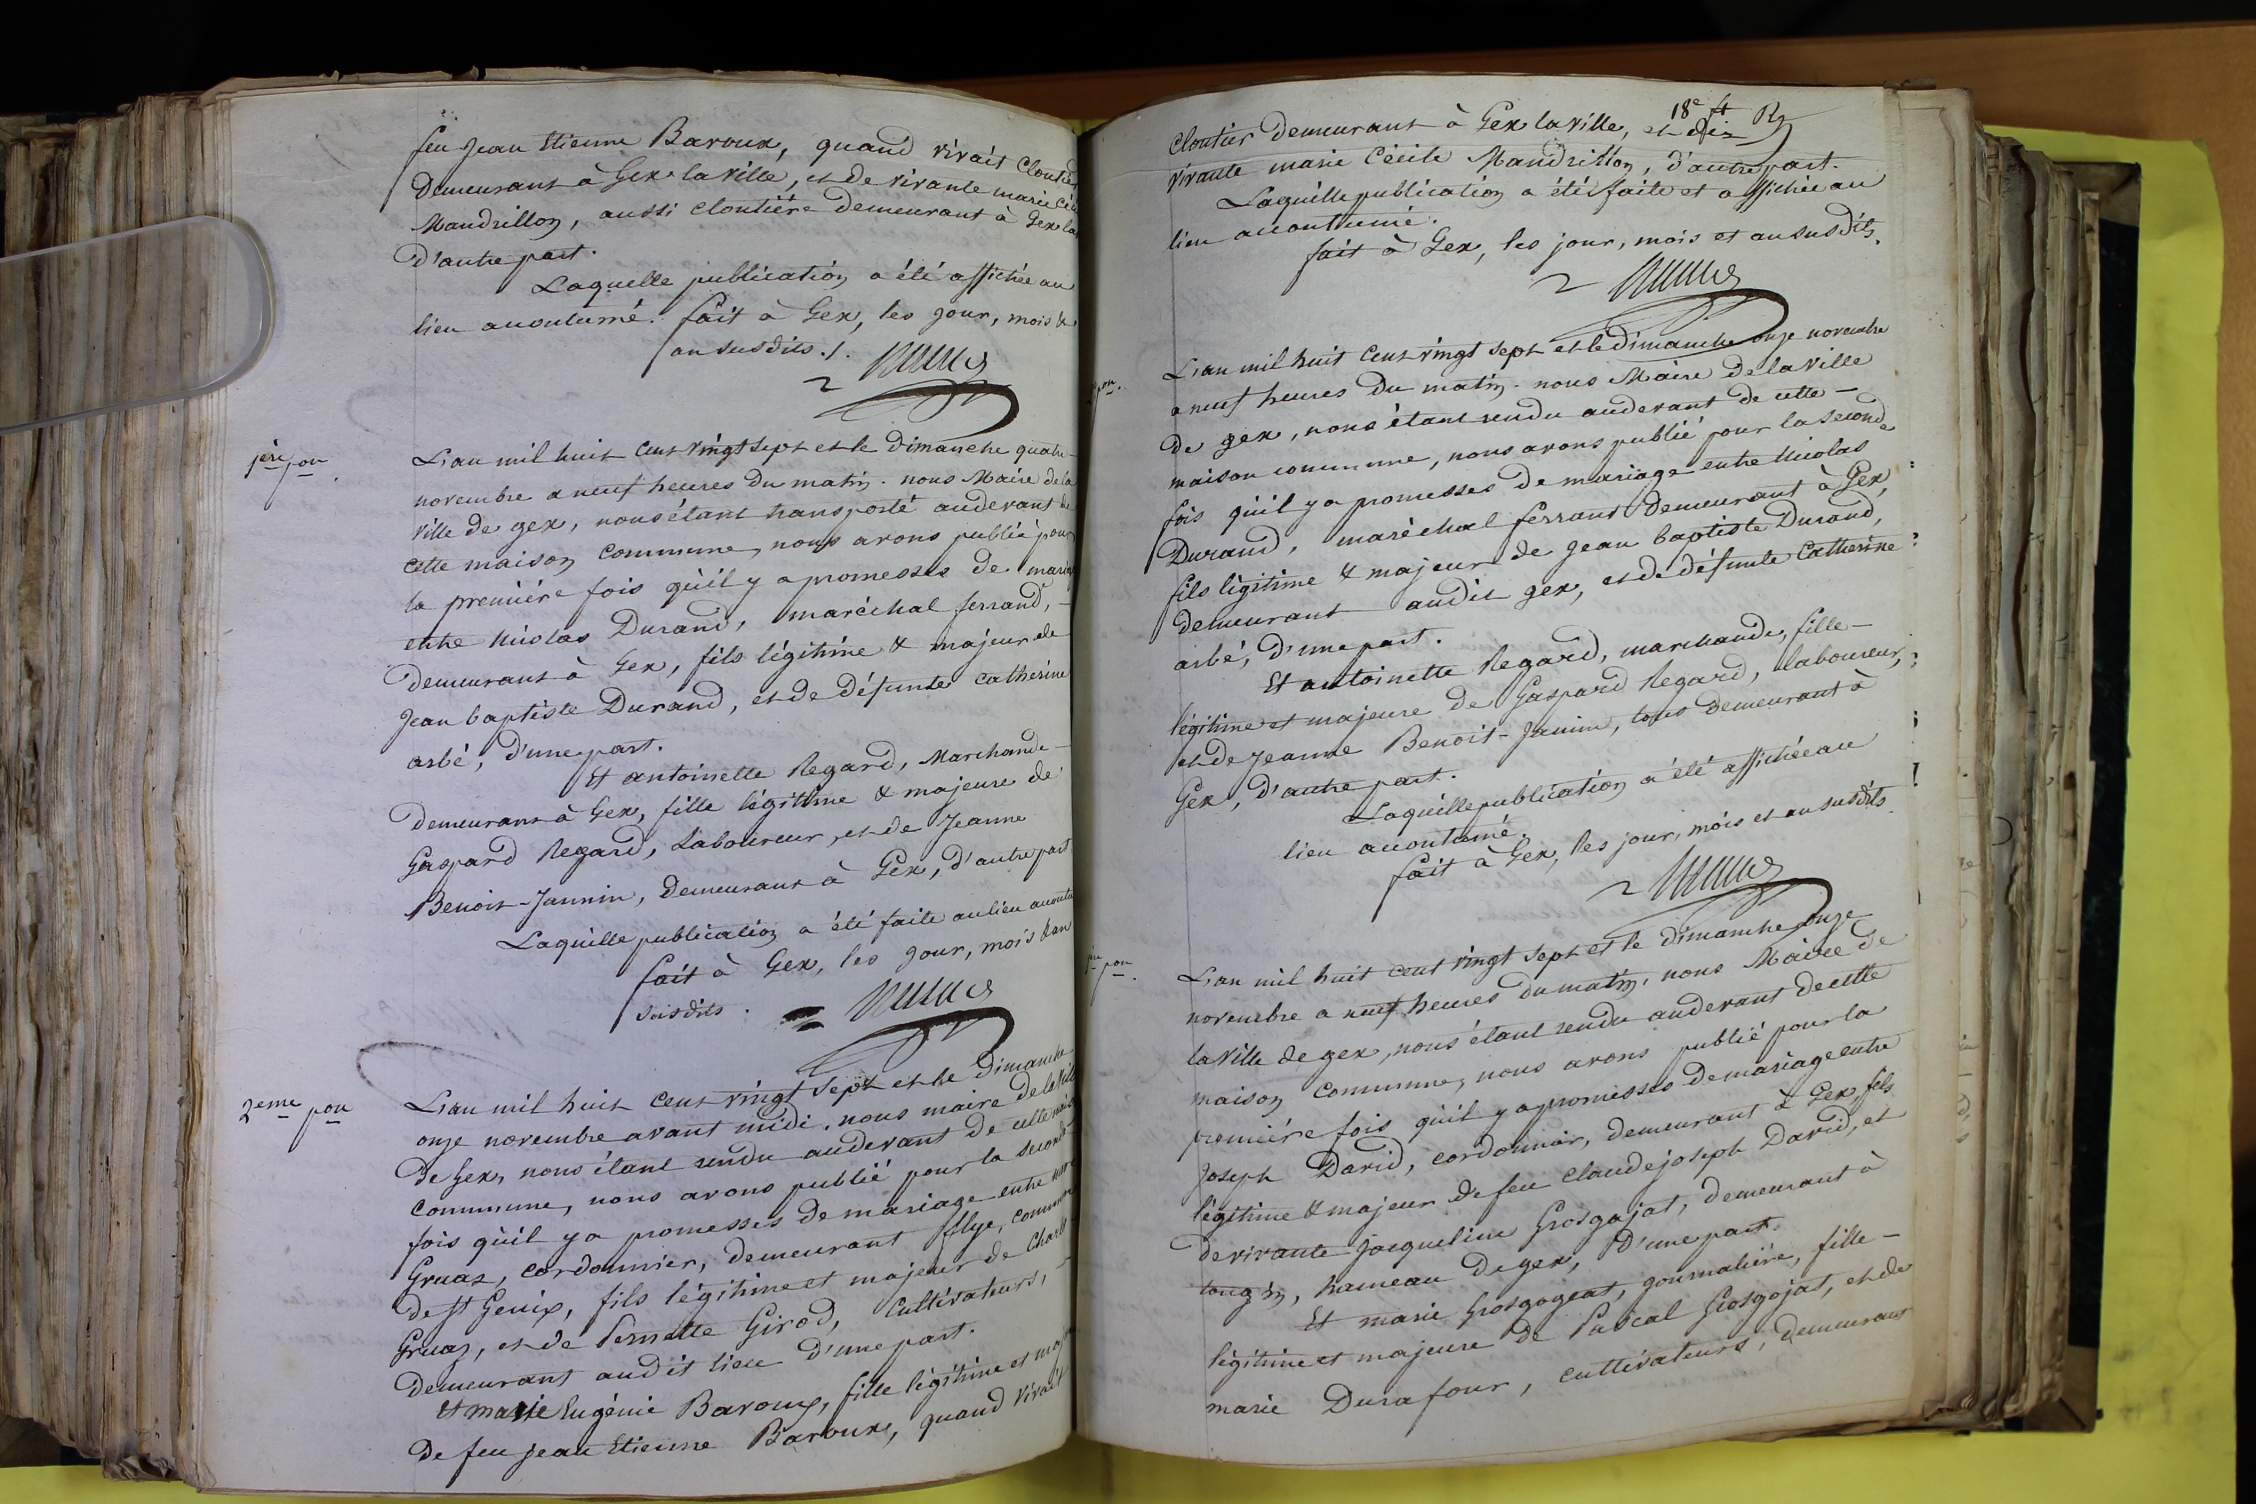 feu Jean Etienne Baroux, quand vivait Cloutier
demeurant à Gex la ville, et de vivante marie Céci
Mandrillon, aussi cloutière demeurant à Gex la
d'autre part.
Laquelle publication a été affichée au
lieu accoutumé. fait à Gex, les jour, mois &
an susdits ./.
1ère pon
L'an mil huit cent vingt sept et le dimanche quatre
novembre a neuf heures du matin. nous Maire de la
ville de gex, nous étant transporté audevant de
cette maison commune, nous avons publié pour
la première fois qu'il y a promesses de mariage
entre Nicolas Durand, maréchal ferrand,
demeurant à Gex, fils légitime & majeur de
Jean baptiste Durand, et de défunte catherine
arbé, d'une part.
Et antoinette Regard, Marchande
demeurant à Gex, fille légitime & majeure de
Gaspard Regard, Laboureur, et de Jeanne
Benoit-Jannin, demeurant à Gex, d'autre part
Laquelle publication a été faite au lieu accoutu
fait à Gex, les jour, mois & an
susdits.
2eme pon
L'an mil huit cent vingt sept et le Dimanche
onze novembre avant midi, nous maire de la ville
de Gex, nous étant rendu audevant de cette maison
commune, nous avons publié pour la seconde
fois qu'il y a promesses de mariage entre
Gruaz, cordonnier, demeurant commune
de St Genix, fils légitime et majeur de Charle
Gruaz, et de Pernette Girod, Cultivateurs,
demeurant audit lieu d'une part.
Et marie Eugénie Baroux, fille légitime et maj
de feu Jean Etienne Baroux, quand vivait
18e ft
cloutier demeurant à Gex la ville, et de
vivante marie Cécile Mandrillon, d'autre part.
Laquelle publication a été faite et affichée au
lieu accoutumé.
fait à Gex, les jour, mois et an susdits.
pon.
L'an mil huit cent vingt sept et le dimanche onze novembre
a neuf heures du matin. nous Maire de la ville
de gex, nous étant rendu audevant de cette
maison commune, nous avons publié pour la seconde
fois qu'il y a promesses de mariage entre Nicolas
Durand, maréchal ferrant demeurant à Gex,
fils légitime & majeur de Jean baptiste Durand,
demeurant audit gex, et de défunte Catherine
arbé, d'une part.
Et antoinette Regard, marchande, fille
légitime et majeure de Gaspard Regard, laboureur,
et de Jeanne Benoit-Jannin, tous demeurant à
Gex, d'autre part.
Laquelle publication a été affichée au
lieu accoutumé.
fait à Gex, les jour, mois et an susdits
pon.
L'an mil huit cent vingt sept et le dimanche onze
novembre a neuf heures du matin, nous Maire de
la ville de gex, nous étant rendu audevant de cette
maison commune, nous avons publié pour la
première fois qu'il y a promesses de mariage entre
Joseph David, cordonnier, demeurant à Gex, fils
légitime & majeur de feu Claude joseph David, et
de vivante Jacqueline Grosgojat, demeurant à
tougin, hameau de gex, d'une part.
Et marie Grosgogeat, journalière, fille
légitime et majeure de Pascal Grosgojat, et de
marie Durafour, cultivateurs, demeurant